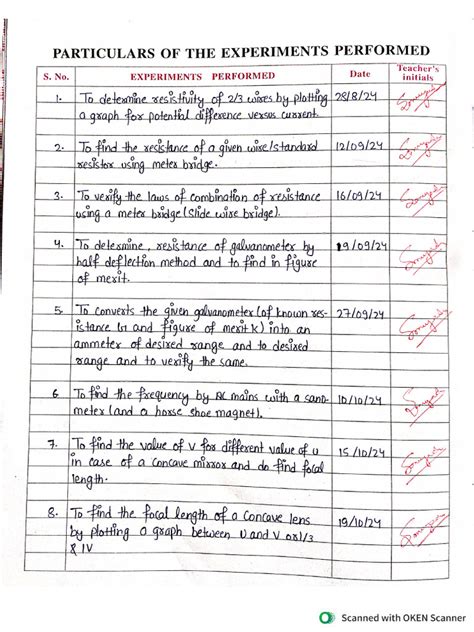 PARTICULARS OF THE EXPERIMENTS PERFORMED
S. No. EXPERIMENTS PERFORMED Date Teacher's initials
1. To determine resistivity of 2/3 wires by plotting 28/8/24
a graph for potential difference versus current.
2. To find the resistance of a given wire/standard 12/09/24
resistor using meter bridge.
3. To verify the laws of combination of resistance 16/09/24
using a meter bridge (Slide wire bridge).
4. To determine, resistance of galvanometer by 19/09/24
half deflection method and to find in figure
of merit.
5. To converts the given galvanometer (of known res- 27/09/24
istance and figure of merit k) into an
ammeter of desired range and to desired
range and to verify the same.
6 To find the frequency by AC mains with a sano- 10/10/24
meter (and a horse shoe magnet).
7. To find the value of V for different value of u 15/10/24
in case of a concave mirror and do find focal
length.
8. To find the focal length of a concave lens 19/10/24
by plotting a graph between U and V or 1/3
& IV
Scanned with OKEN Scanner